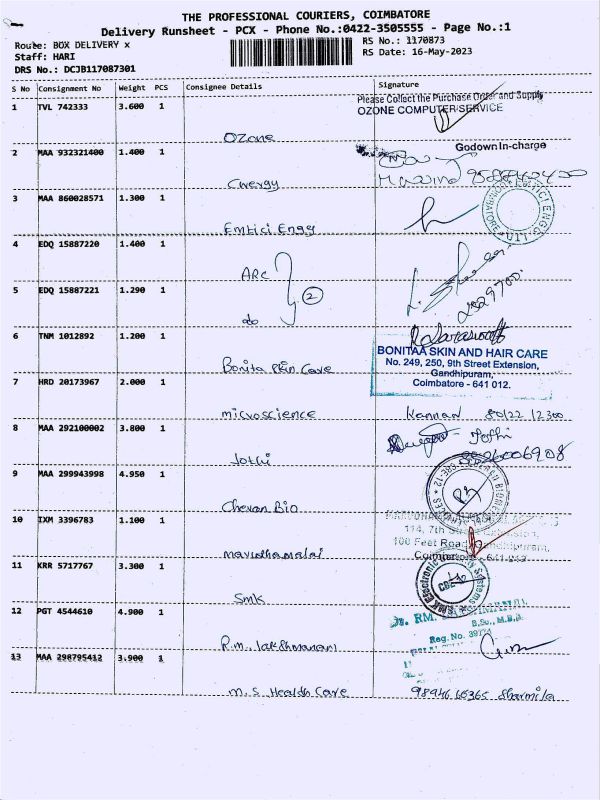 THE PROFESSIONAL COURIERS, COIMBATORE
Delivery Runsheet - PCX - Phone No.:0422-3505555 - Page No.:1
Route: BOX DELIVERY x RS No.: 1170873
Staff: HARI RS Date: 16-May-2023
DRS No.: DCJB117087301
S No Consignment No Weight PCS Consignee Details Signature
1 TVL 742333 3.600 1 Please Collect the Purchase Order and Supply
OZONE COMPUTER SERVICE
Ozone
Godown In-charge
2 MAA 932321400 1.400 1
Cavergy
3 MAA 860028571 1.300 1
Emtici Engg
4 EDQ 15887220 1.400 1
ARC
2
5 EDQ 15887221 1.290 1
do
6 TNM 1012892 1.200 1
BONITAA SKIN AND HAIR CARE
No. 249, 250, 9th Street Extension,
Bonita Skin Care Gandhipuram,
7 HRD 20173967 2.000 1 Coimbatore - 641 012.
microscience Kannan 80122 12300
8 MAA 292100002 3.800 1
Jothi Jothi
9 MAA 299943998 4.950 1
Chevan Bio
10 IXM 3396783 1.100 1
114, 7th
100 Feet Road, Gandhipuram,
11 KRR 5717767 3.300 1
SMK SMK Electronic Security Systems
12 PGT 4544610 4.900 1
Dr. RM.
B.Sc., M.B.A
Reg. No.
R.m. lakshmanan
13 MAA 298795412 3.900 1
M.S. Health Care 9894665365 Sharmila